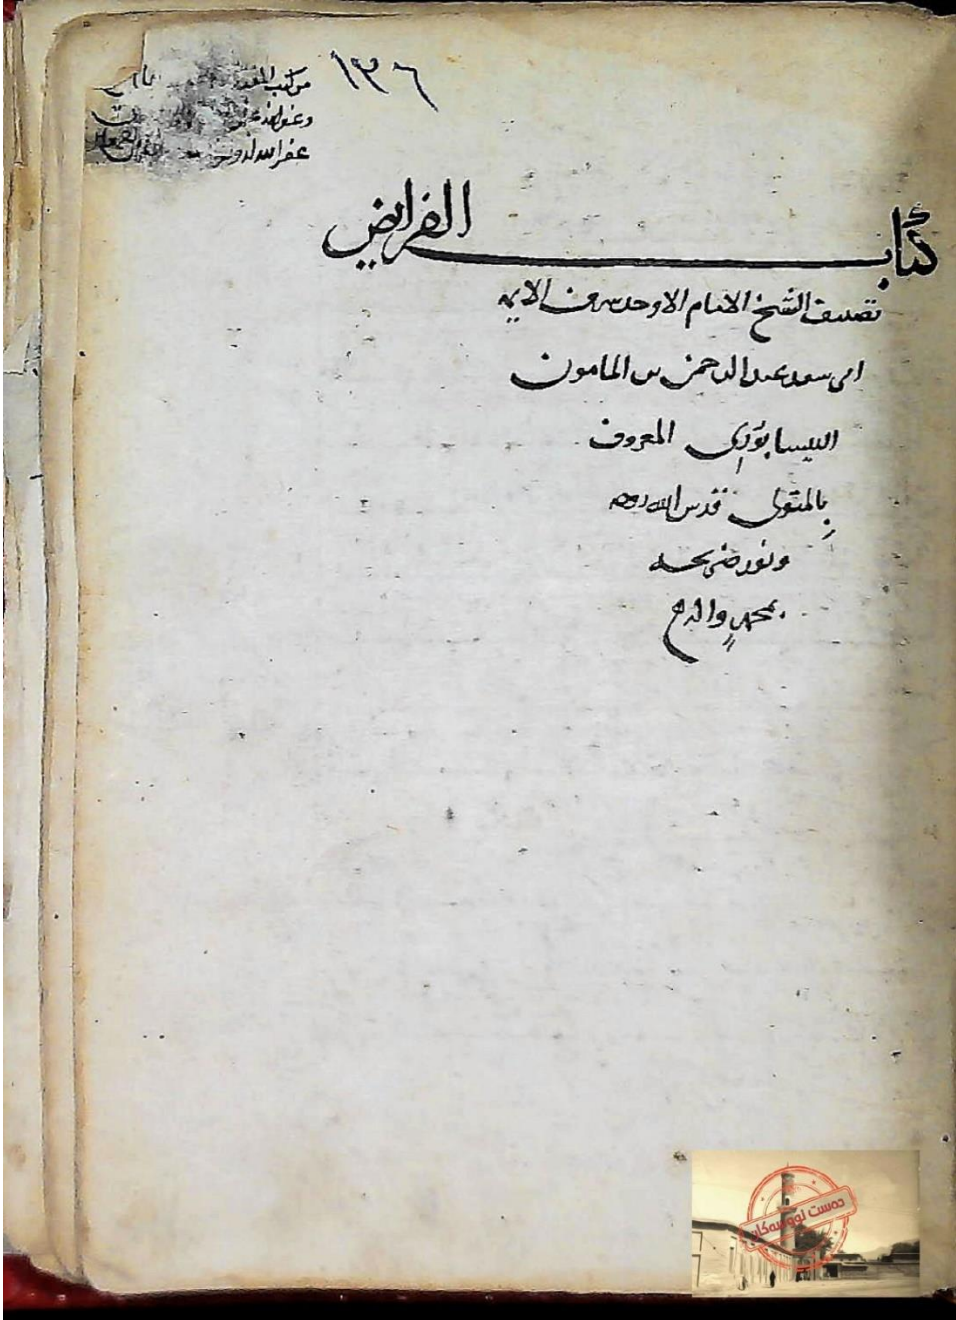 ١٣٦
من كتب
غفر الله
كتاب الفرايض
تصنيف الشيخ الامام الاوحد شرف الايمه
ابى سعد عبد الرحمن بن المامون
النيسابورى المعروف
بالمتولى قدس الله روحه
ونور ضريحه
بمحمد واله
دەست نووسەکان